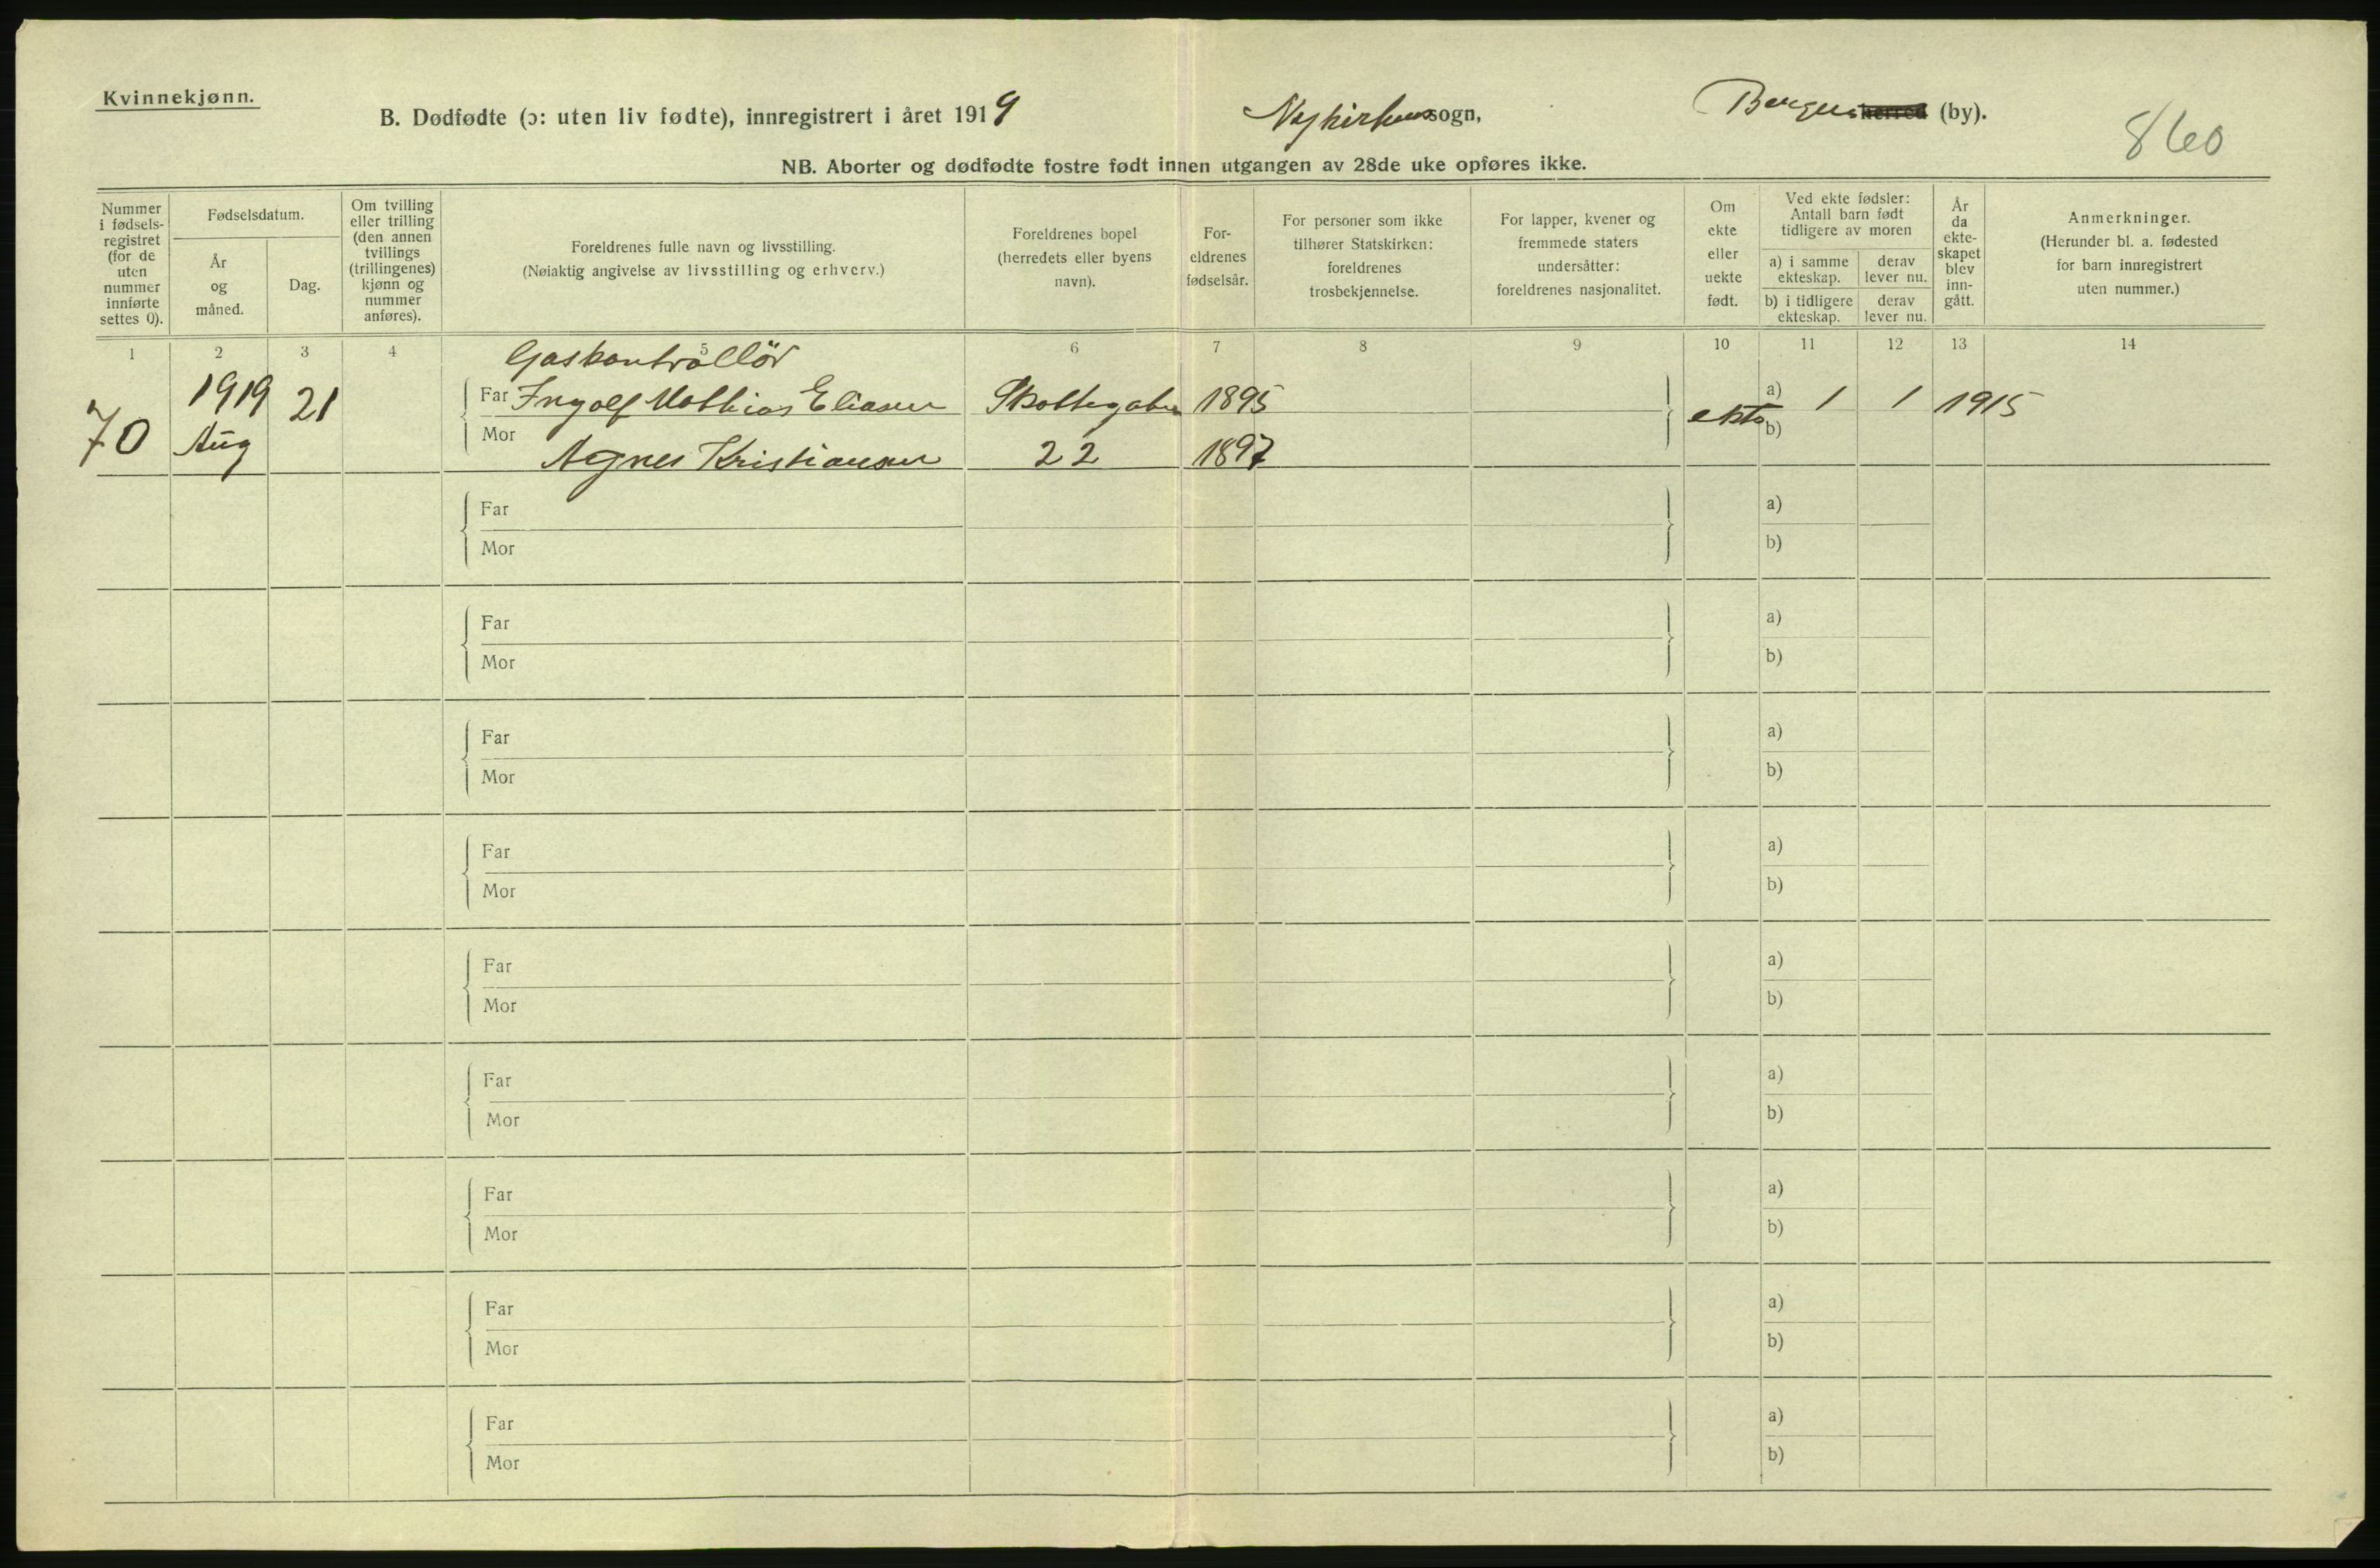 Kvinnekjønn.
B. Dødfødte (ɔ: uten liv fødte), innregistrert i året 1919 Nykirkens sogn, Bergens herred (by).
860
NB. Aborter og dødfødte fostre født innen utgangen av 28de uke opføres ikke.
Nummer i fødsels-registret (for de uten nummer innførte settes 0).
Fødselsdatum.
År og måned.
Dag.
Om tvilling eller trilling (den annen tvillings (trillingenes) kjønn og nummer anføres).
Foreldrenes fulle navn og livsstilling.
(Nøiaktig angivelse av livsstilling og erhverv.)
Foreldrenes bopel (herredets eller byens navn).
For-eldrenes fødselsår.
For personer som ikke tilhører Statskirken: foreldrenes trosbekjennelse.
For lapper, kvener og fremmede staters undersåtter: foreldrenes nasjonalitet.
Om ekte eller uekte født.
Ved ekte fødsler: Antall barn født tidligere av moren
a) i samme ekteskap.
derav lever nu.
b) i tidligere ekteskap.
derav lever nu.
År da ekte-skapet blev inn-gått.
Anmerkninger.
(Herunder bl. a. fødested for barn innregistrert uten nummer.)
1 2 3 4 5 6 7 8 9 10 11 12 13 14
Gaskontrollör
70 1919 Aug 21 Far Ingolf Mathias Eliasen Skoltegaten 1895 ekte a) 1 1 1915
Mor Agnes Kristiansen 22 1897 b)
Far a)
Mor b)
Far a)
Mor b)
Far a)
Mor b)
Far a)
Mor b)
Far a)
Mor b)
Far a)
Mor b)
Far a)
Mor b)
Far a)
Mor b)
Far a)
Mor b)